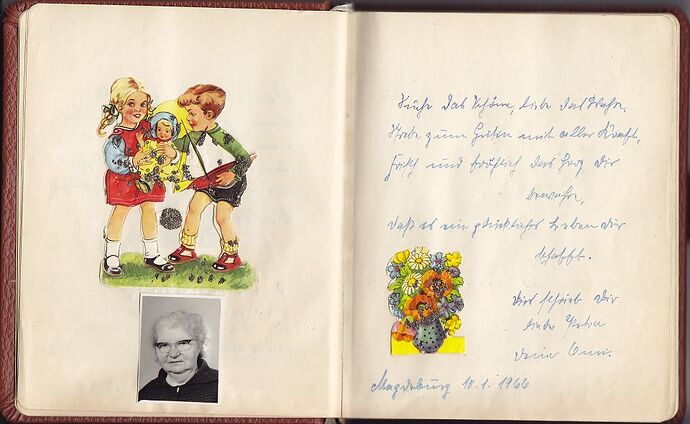 Suche das Schöne, liebe das Wahre,
Strebe zum Guten mit aller Kraft,
Frisch und fröhlich das Herz Dir
bewahre,
daß es ein glückliches Leben dir
schafft.
Dies schrieb Dir
liebe
deine Omi.
Magdeburg 10.1.1966